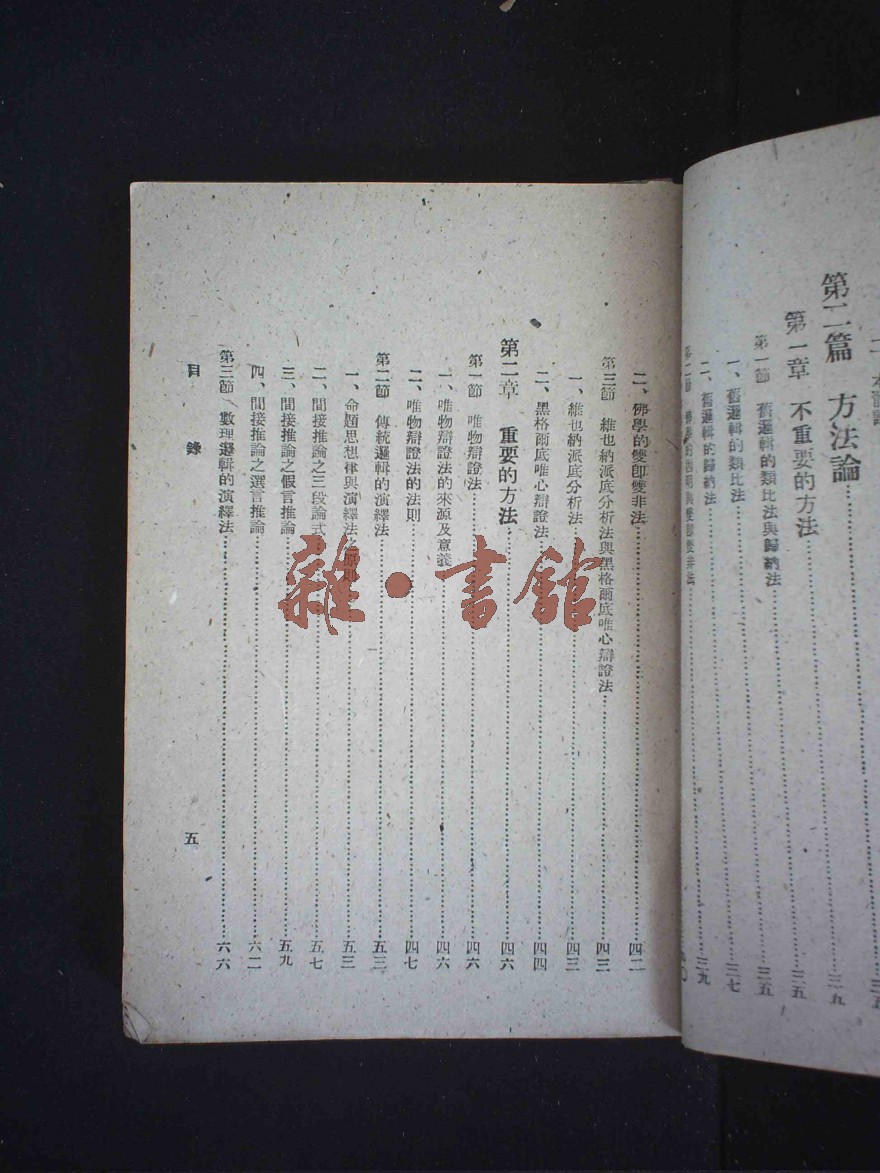 第二篇 方法論……三五
第一章 不重要的方法……三五
第一節 舊邏輯的類比法與歸納法……三五
一、舊邏輯的類比法……三七
二、舊邏輯的歸納法……三九
二、佛學的雙卽雙非法……四二
第三節 維也納派底分析法與黑格爾底唯心辯證法……四三
一、維也納派底分析法……四三
二、黑格爾底唯心辯證法……四四
第二章 重要的方法……四六
第一節 唯物辯證法……四六
一、唯物辯證法的來源及意義……四六
二、唯物辯證法的法則……四七
第二節 傳統邏輯的演繹法……五三
一、命題思想律與演繹法之原則……五三
二、間接推論之三段論式……五七
三、間接推論之假言推論……五九
四、間接推論之選言推論……六二
第三節 數理邏輯的演繹法……六六
目錄
五
雜·書館